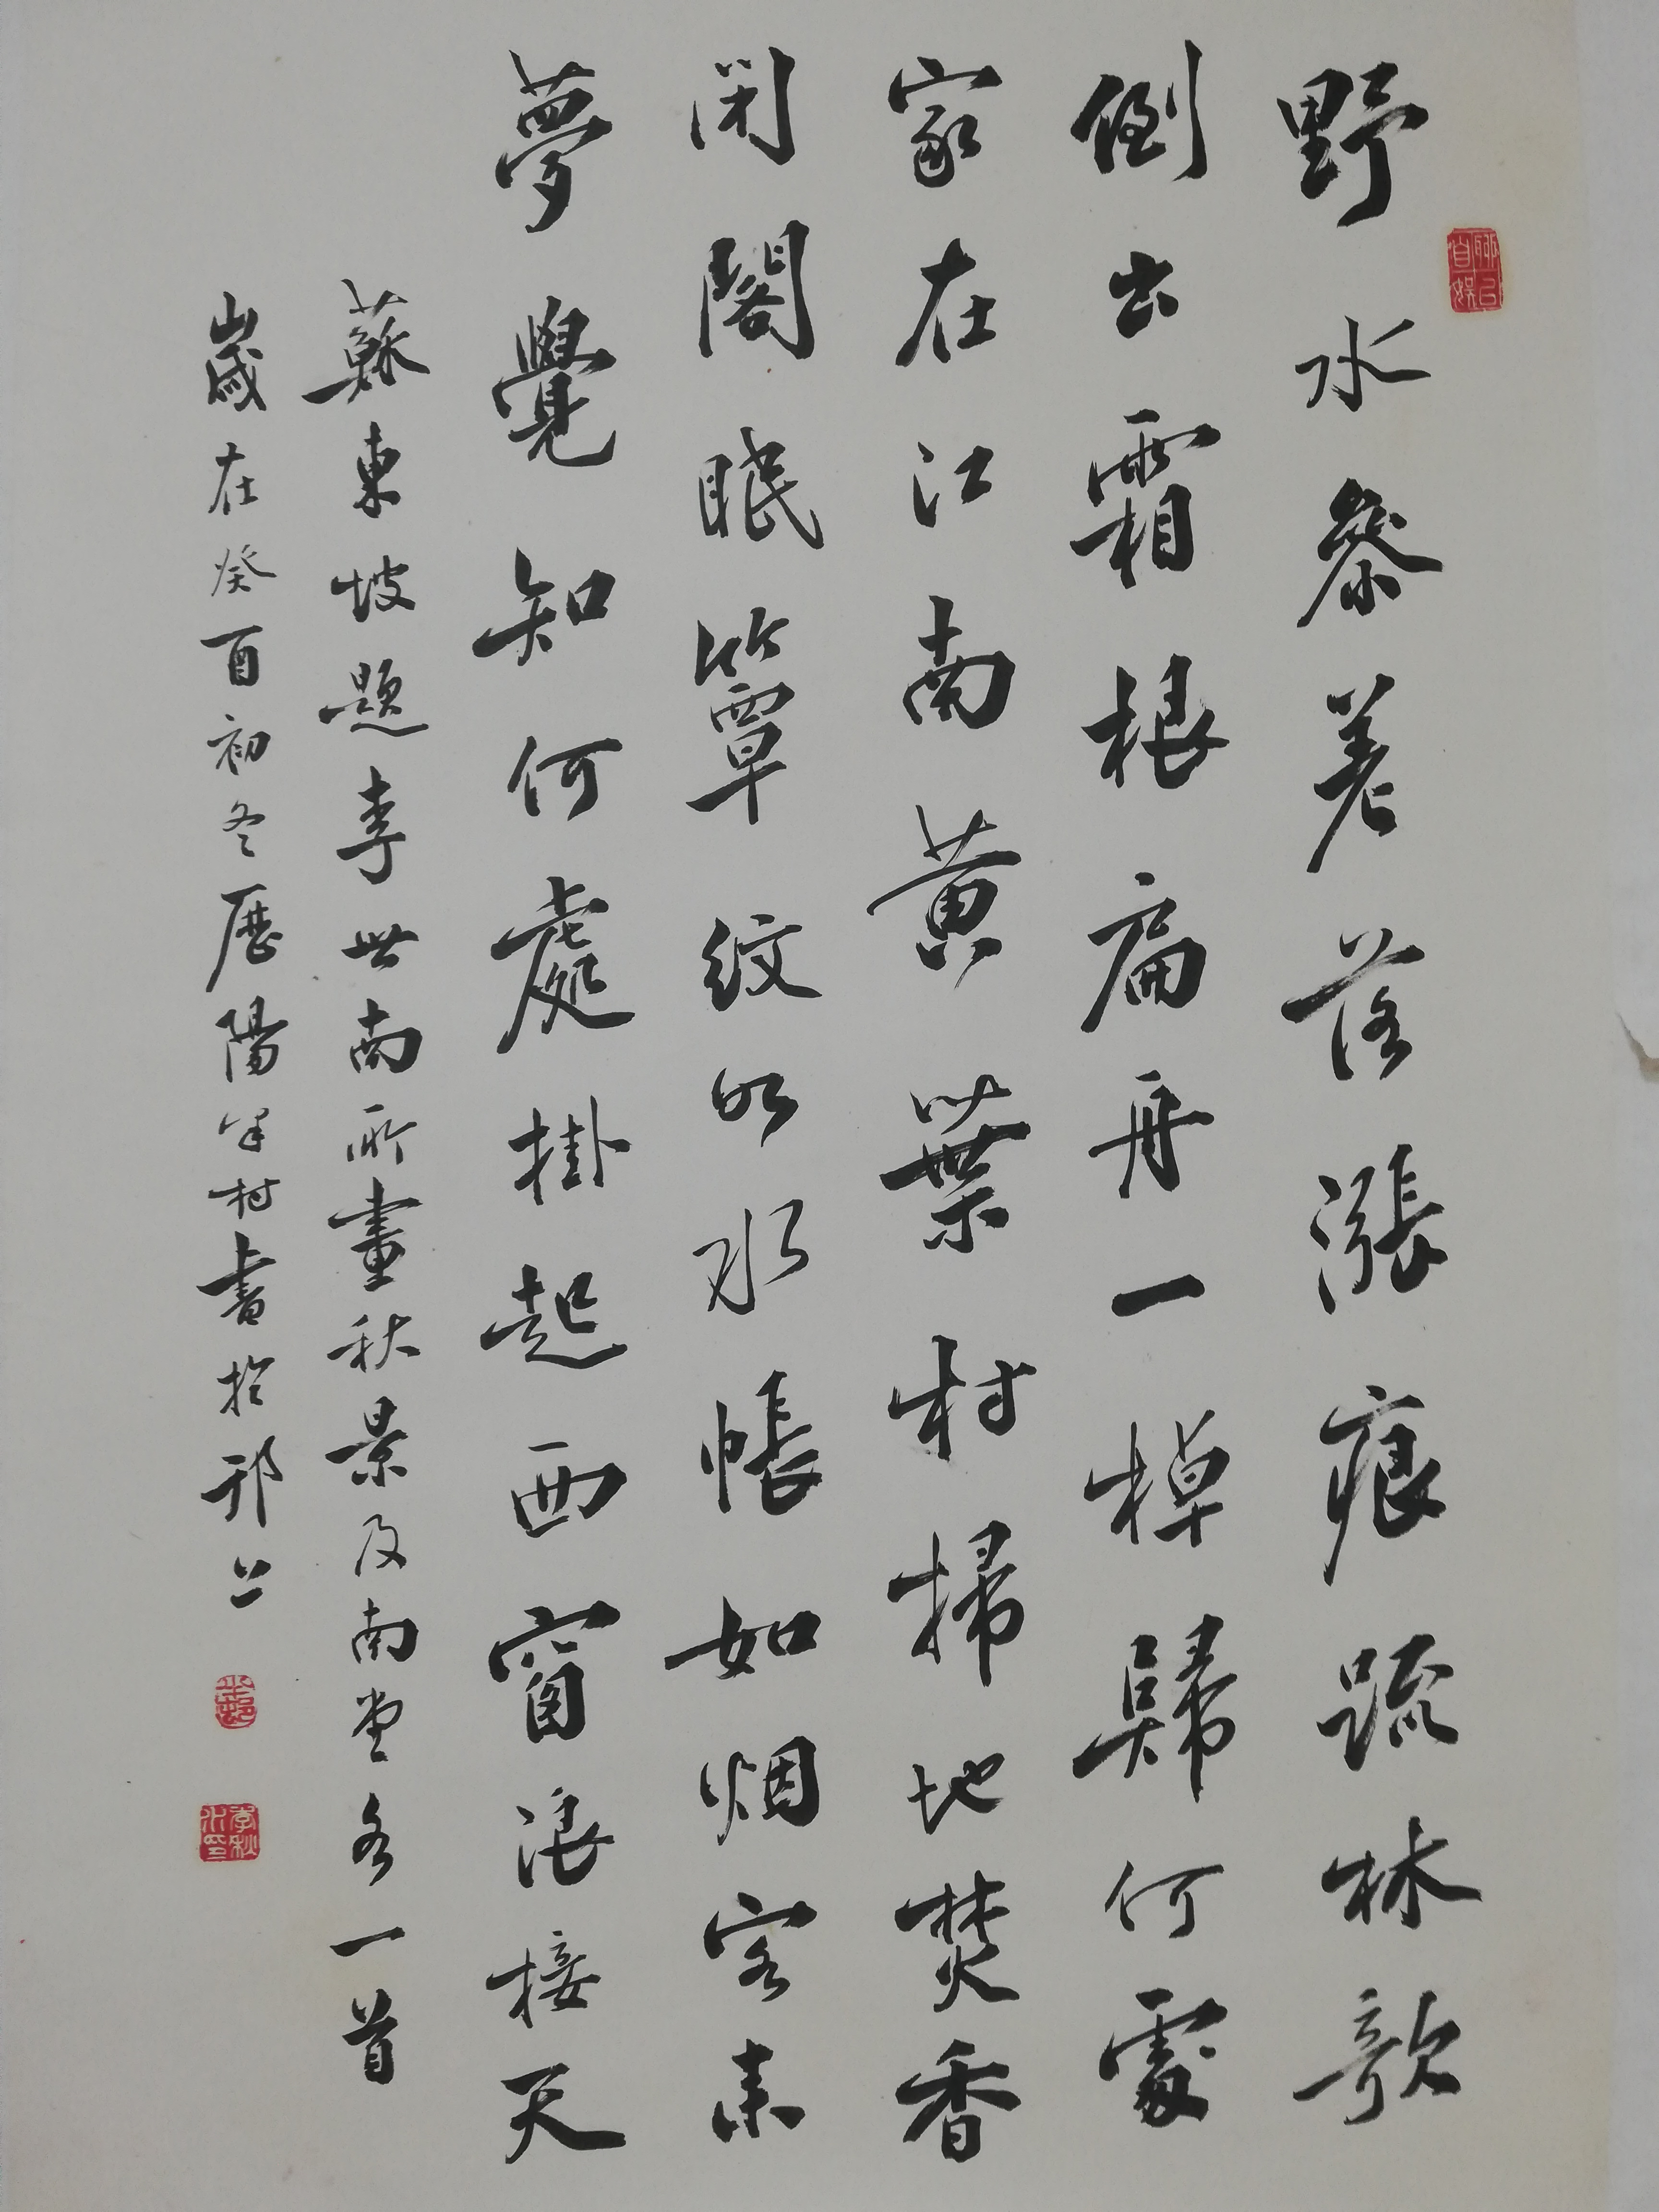 野水參差落漲痕疏林欹
倒出霜根扁舟一棹歸何處
家在江南黃葉村掃地焚香
閉閣眠簟紋如水帳如烟客來
夢覺知何處掛起西窗浪接天
蘇東坡題李世南所畫秋景及南堂各一首
歲在癸酉初冬歷陽半村書於邗上
聊以自娛
半邨
李秋水印